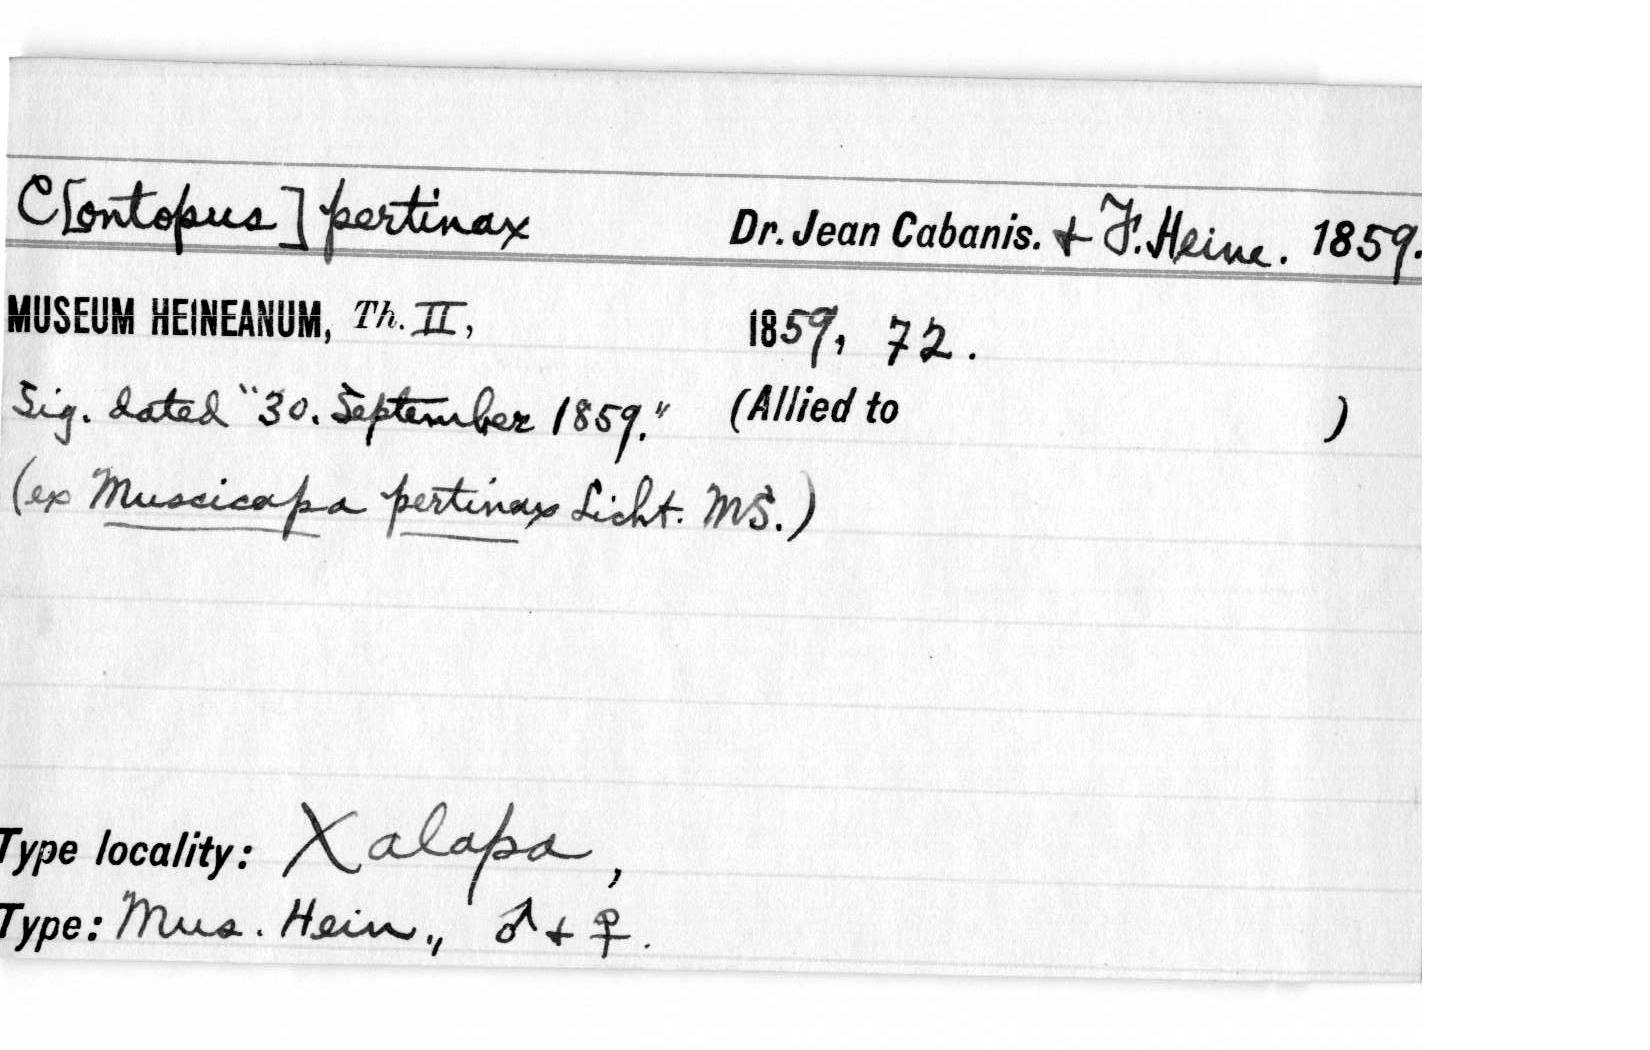 C[ontopus] pertinax Dr. Jean Cabanis. + F. Heine. 1859.
MUSEUM HEINEANUM, Th. II, 1859, 72.
Sig. dated "30. September 1859." (Allied to )
(ex Muscicapa pertinax Licht. MS.)
Type locality: Xalapa,
Type: Mus. Hein., ♂ + ♀.